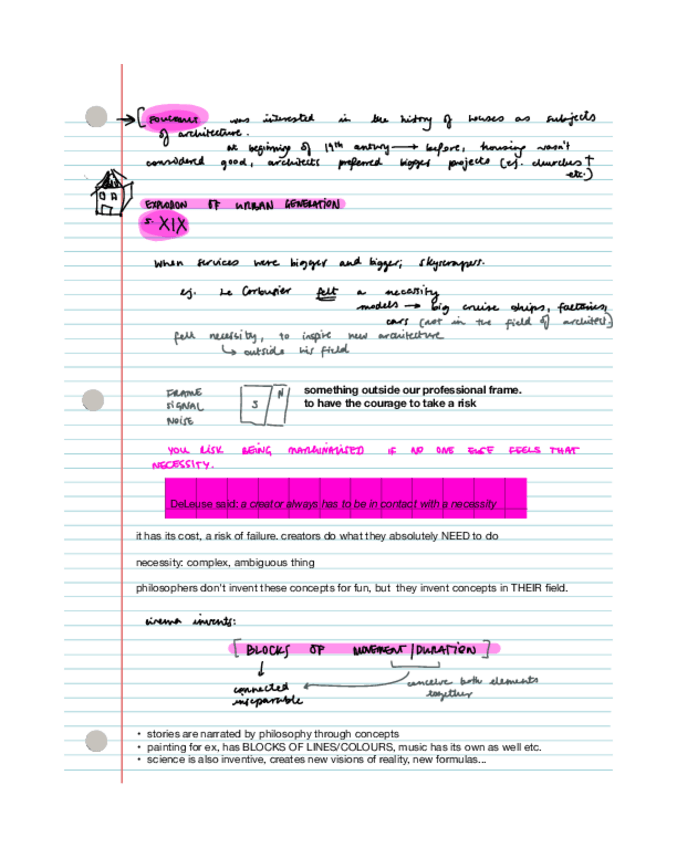 → [ FOUCAULT was interested in the history of houses as subjects
of architecture.
at beginning of 19th century → before, housing wasn't
considered good, architects preferred bigger projects (ej. churches +
etc.)
EXPLOSION OF URBAN GENERATION
S. XIX
when services were bigger and bigger; skyscrapers.
ej. Le Corbusier felt a necessity
models → big cruise ships, factories,
cars (not in the field of architect.)
felt necessity, to inspire new architecture
↳ outside his field
FRAME
SIGNAL
NOISE
S N
something outside our professional frame.
to have the courage to take a risk
YOU RISK BEING MARGINALISED IF NO ONE ELSE FEELS THAT
NECESSITY.
DeLeuse said: a creator always has to be in contact with a necessity
it has its cost, a risk of failure. creators do what they absolutely NEED to do
necessity: complex, ambiguous thing
philosophers don't invent these concepts for fun, but they invent concepts in THEIR field.
cinema invents:
[ BLOCKS OF MOVEMENT/DURATION ]
conceive both elements
together
connected
inseparable
• stories are narrated by philosophy through concepts
• painting for ex, has BLOCKS OF LINES/COLOURS, music has its own as well etc.
• science is also inventive, creates new visions of reality, new formulas...